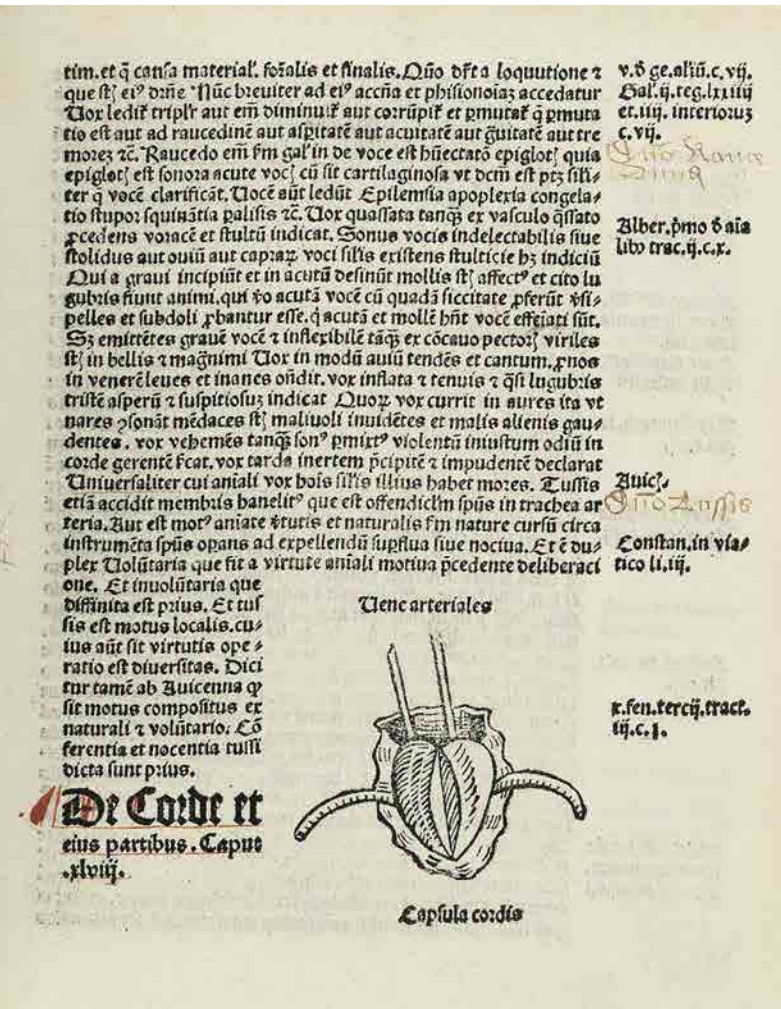 tim. et q̄ causa material'. formalis et finalis. Quō dr̄ta a loquutione ⁊
que st̄ꝫ ei⁹ dr̄ne Nūc breuiter ad ei⁹ accn̄a et phisionoīaꝫ accedatur
Uox ledit᷑ tripl'r aut em̄ diminuit᷑ aut corrūpit᷑ et ꝑmutat᷑ q̄ ꝑmuta
tio est aut ad raucedinē aut aspitatē aut acuitatē aut g̃uitatē aut tre
moreꝫ ⁊c̄. Raucedo em̄ fm̄ gal'in de voce est hūectatō epigloꝫ quia
epigloꝫ est sonora acute vocꝫ cū sit cartilaginosa vt dcm̄ est ptꝫ sili-
ter q̄ vocē clarificāt. Vocē aūt ledūt Epilemsia apoplexia congela-
tio stupor squinātia palisis ⁊c̄. Uox quassata tanq̄ꝫ ex vasculo q̄ssato
ꝓcedens voracē et stultū indicat. Sonus vocis indelectabilis siue
stolidus aut ouiū aut capraꝝ voci sil'is existens stulticie hꝫ indiciū
Qui a graui incipiūt et in acutū desinūt mollis st̄ꝫ affect⁹ et cito lu
gubris fiunt animi. qui v̄o acutā vocē cū quadā siccitate ꝓferūt v̄si-
pelles et subdoli ꝓbantur esse. q̄ acutā et mollē hn̄t vocē effeīati sūt.
Sꝫ emittētes grauē vocē ⁊ inflexibilē tāq̄ꝫ ex cōcauo pectorꝫ viriles
st̄ꝫ in bellis ⁊ magn̄imi Uox in modū auiū tendēs et cantum. ꝓnos
in venerē leues et inanes oñdit. vox inflata ⁊ tenuis ⁊ q̄si lugubris
tristē asperū ⁊ suspitiosuꝫ indicat Quoꝝ vox currit in aures ita vt
nares ꝯsonāt mēdaces st̄ꝫ maliuoli inuidētes et malis alienis gau-
dentes. vox vehemēs tanq̄ꝫ son⁹ ꝑmixt⁹ violentū iniustum odiū in
corde gerentē fcat. vox tarda inertem p̄cipitē ⁊ impudentē declarat
Uniuersaliter cui aniali vox hoīs sil'is illius habet mores. Tussis
etiā accidit membris hanelit⁹ que est offendicl'm spūs in trachea ar
teria. Aut est mot⁹ aniate v̄tutis et naturalis fm̄ nature cursū circa
instrumēta spūs opans ad expellendū suꝑflua siue nociua. Et ē du-
plex Uolūtaria que fit a virtute aniali motiua p̄cedente deliberaci
one. Et inuolūtaria que
diffinita est prius. Et tus
sis est motus localis. cu-
ius aūt sit virtutis ope-
ratio est diuersitas. Dici
tur tamē ab Auicenna ꝙ
sit motus compositus ex
naturali ⁊ volūtario. Cō
ferentia et nocentia tussi
dicta sunt prius.
De Corde et
eius partibus. Caput
.xlviij.
Uene arteriales
Capsula cordis
v. ð ge. aliū. c. vij.
Gal. ij. teg. lxxiiij
et. iiij. interioruꝫ
c. vij.
Alber. p̄mo ð aīa
libro trac. ij. c. x.
Auicꝫ.
Quō Tussis
Constan. in via-
tico li. iij.
x. fen. tercij. tract.
iij. c. j.